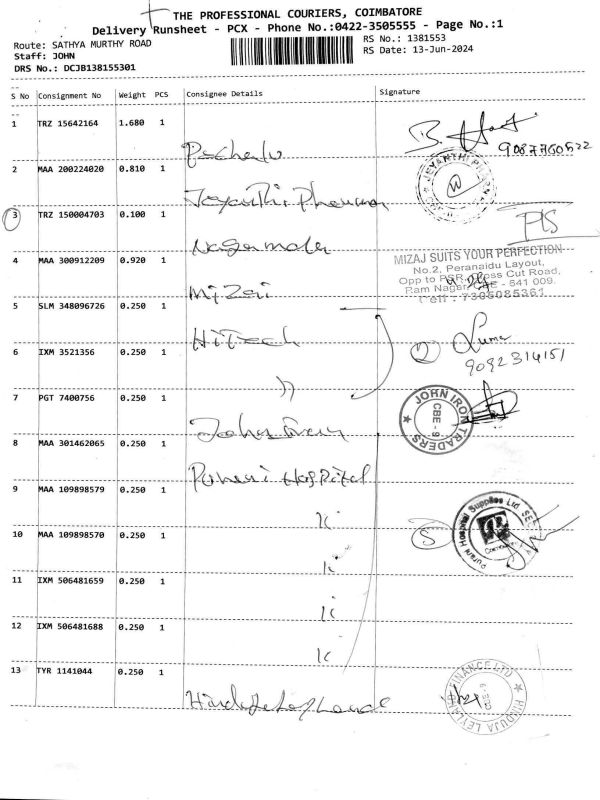 THE PROFESSIONAL COURIERS, COIMBATORE
Delivery Runsheet - PCX - Phone No.:0422-3505555 - Page No.:1
Route: SATHYA MURTHY ROAD
RS No.: 1381553
Staff: JOHN
RS Date: 13-Jun-2024
DRS No.: DCJB138155301
S No Consignment No Weight PCS Consignee Details Signature
1 TRZ 15642164 1.680 1
9087760522
2 MAA 200224020 0.810 1 Jayanthi Pharma
JEYANTHI PHARMA
3 TRZ 150004703 0.100 1
4 MAA 300912209 0.920 1 Mizai
MIZAJ SUITS YOUR PERFECTION
No.2, Peranaidu Layout,
Opp to PSR, Cross Cut Road,
Ram Nagar, CBE - 641 009.
Cell : 7305085361
5 SLM 348096726 0.250 1 HiTech
6 IXM 3521356 0.250 1 "
2
9092314151
7 PGT 7400756 0.250 1
JOHN IRON TRADERS
CBE - 9
8 MAA 301462065 0.250 1 Purani Hospital
9 MAA 109898579 0.250 1
5
Purani Hospital Supplies Ltd
10 MAA 109898570 0.250 1
11 IXM 506481659 0.250 1
12 IXM 506481688 0.250 1
13 TYR 1141044 0.250 1
HINDUJA LEYLAND FINANCE LTD